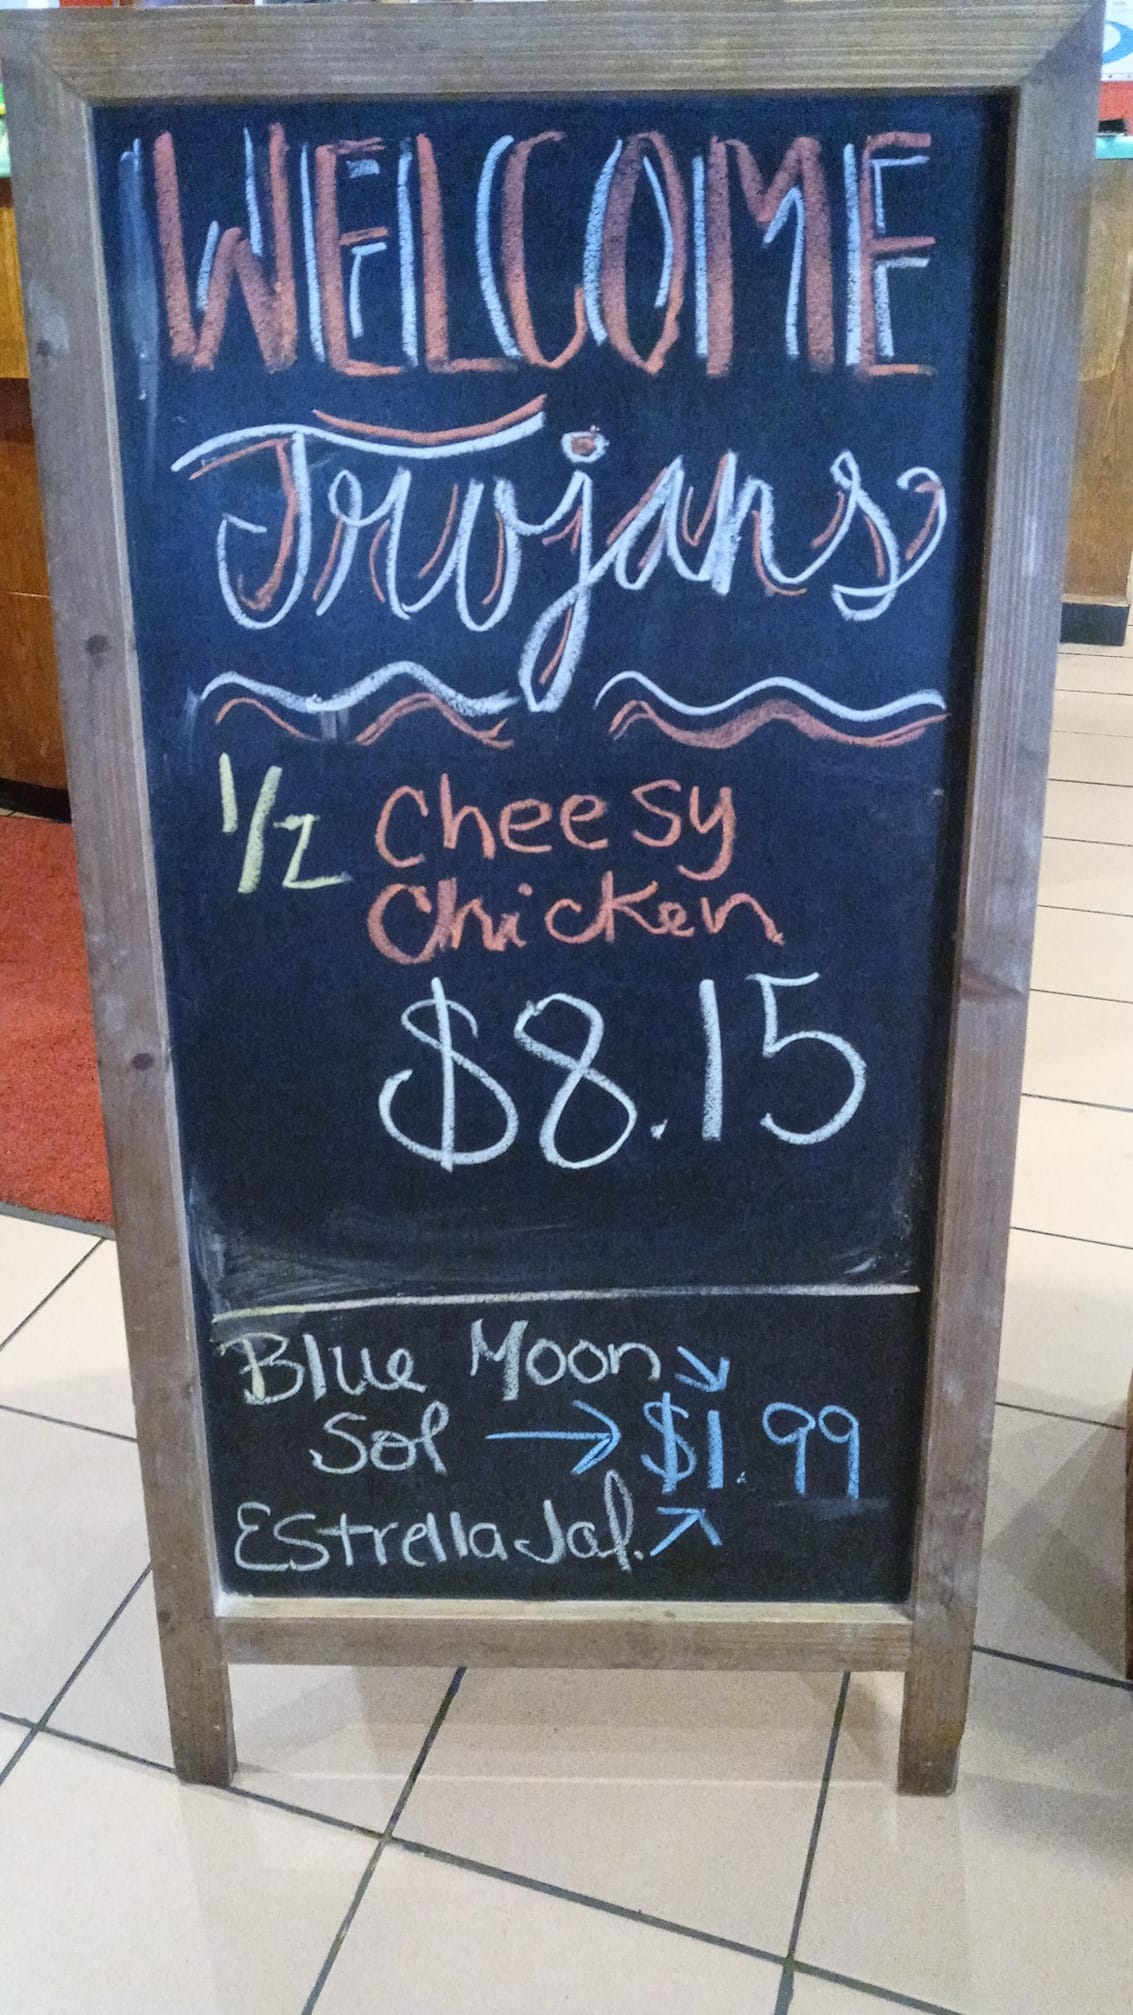 WELCOME
Trojans
1/2 Cheesy
Chicken
$8.15
Blue Moon ↘
Sol → $1.99
Estrella Jal. ↗